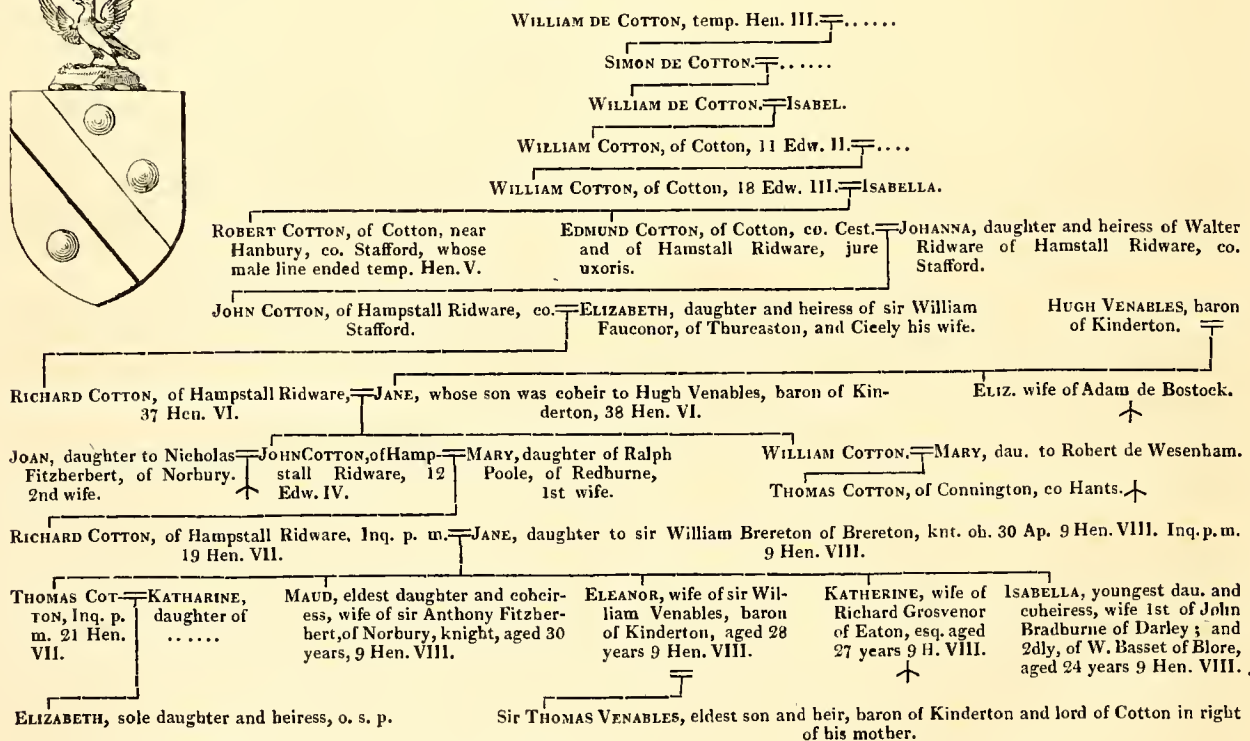 WILLIAM DE COTTON, temp. Hen. III.=......
SIMON DE COTTON.=......
WILLIAM DE COTTON.=ISABEL.
WILLIAM COTTON, of Cotton, 11 Edw. II.=....
WILLIAM COTTON, of Cotton, 18 Edw. III.=ISABELLA.
ROBERT COTTON, of Cotton, near
Hanbury, co. Stafford, whose
male line ended temp. Hen. V.
EDMUND COTTON, of Cotton, co. Cest.
and of Hamstall Ridware, jure
uxoris.
=JOHANNA, daughter and heiress of Walter
Ridware of Hamstall Ridware, co.
Stafford.
JOHN COTTON, of Hampstall Ridware, co.
Stafford.
=ELIZABETH, daughter and heiress of sir William
Fauconor, of Thurcaston, and Cicely his wife.
HUGH VENABLES, baron
of Kinderton. =
RICHARD COTTON, of Hampstall Ridware,
37 Hen. VI.
=JANE, whose son was coheir to Hugh Venables, baron of Kin-
derton, 38 Hen. VI.
ELIZ. wife of Adam de Bostock.
JOAN, daughter to Nicholas
Fitzherbert, of Norbury.
2nd wife.
=JOHN COTTON, of Hamp-
stall Ridware, 12
Edw. IV.
=MARY, daughter of Ralph
Poole, of Redburne,
1st wife.
WILLIAM COTTON.=MARY, dau. to Robert de Wesenham.
THOMAS COTTON, of Connington, co Hants.
RICHARD COTTON, of Hampstall Ridware, Inq. p. m.
19 Hen. VII.
=JANE, daughter to sir William Brereton of Brereton, knt. ob. 30 Ap. 9 Hen. VIII. Inq. p. m.
9 Hen. VIII.
THOMAS COT-
TON, Inq. p.
m. 21 Hen.
VII.
=KATHARINE,
daughter of
......
MAUD, eldest daughter and coheir-
ess, wife of sir Anthony Fitzher-
bert, of Norbury, knight, aged 30
years, 9 Hen. VIII.
ELEANOR, wife of sir Wil-
liam Venables, baron
of Kinderton, aged 28
years 9 Hen. VIII.
KATHERINE, wife of
Richard Grosvenor
of Eaton, esq. aged
27 years 9 H. VIII.
ISABELLA, youngest dau. and
coheiress, wife 1st of John
Bradburne of Darley; and
2dly, of W. Basset of Blore,
aged 24 years 9 Hen. VIII.
ELIZABETH, sole daughter and heiress, o. s. p.
Sir THOMAS VENABLES, eldest son and heir, baron of Kinderton and lord of Cotton in right
of his mother.